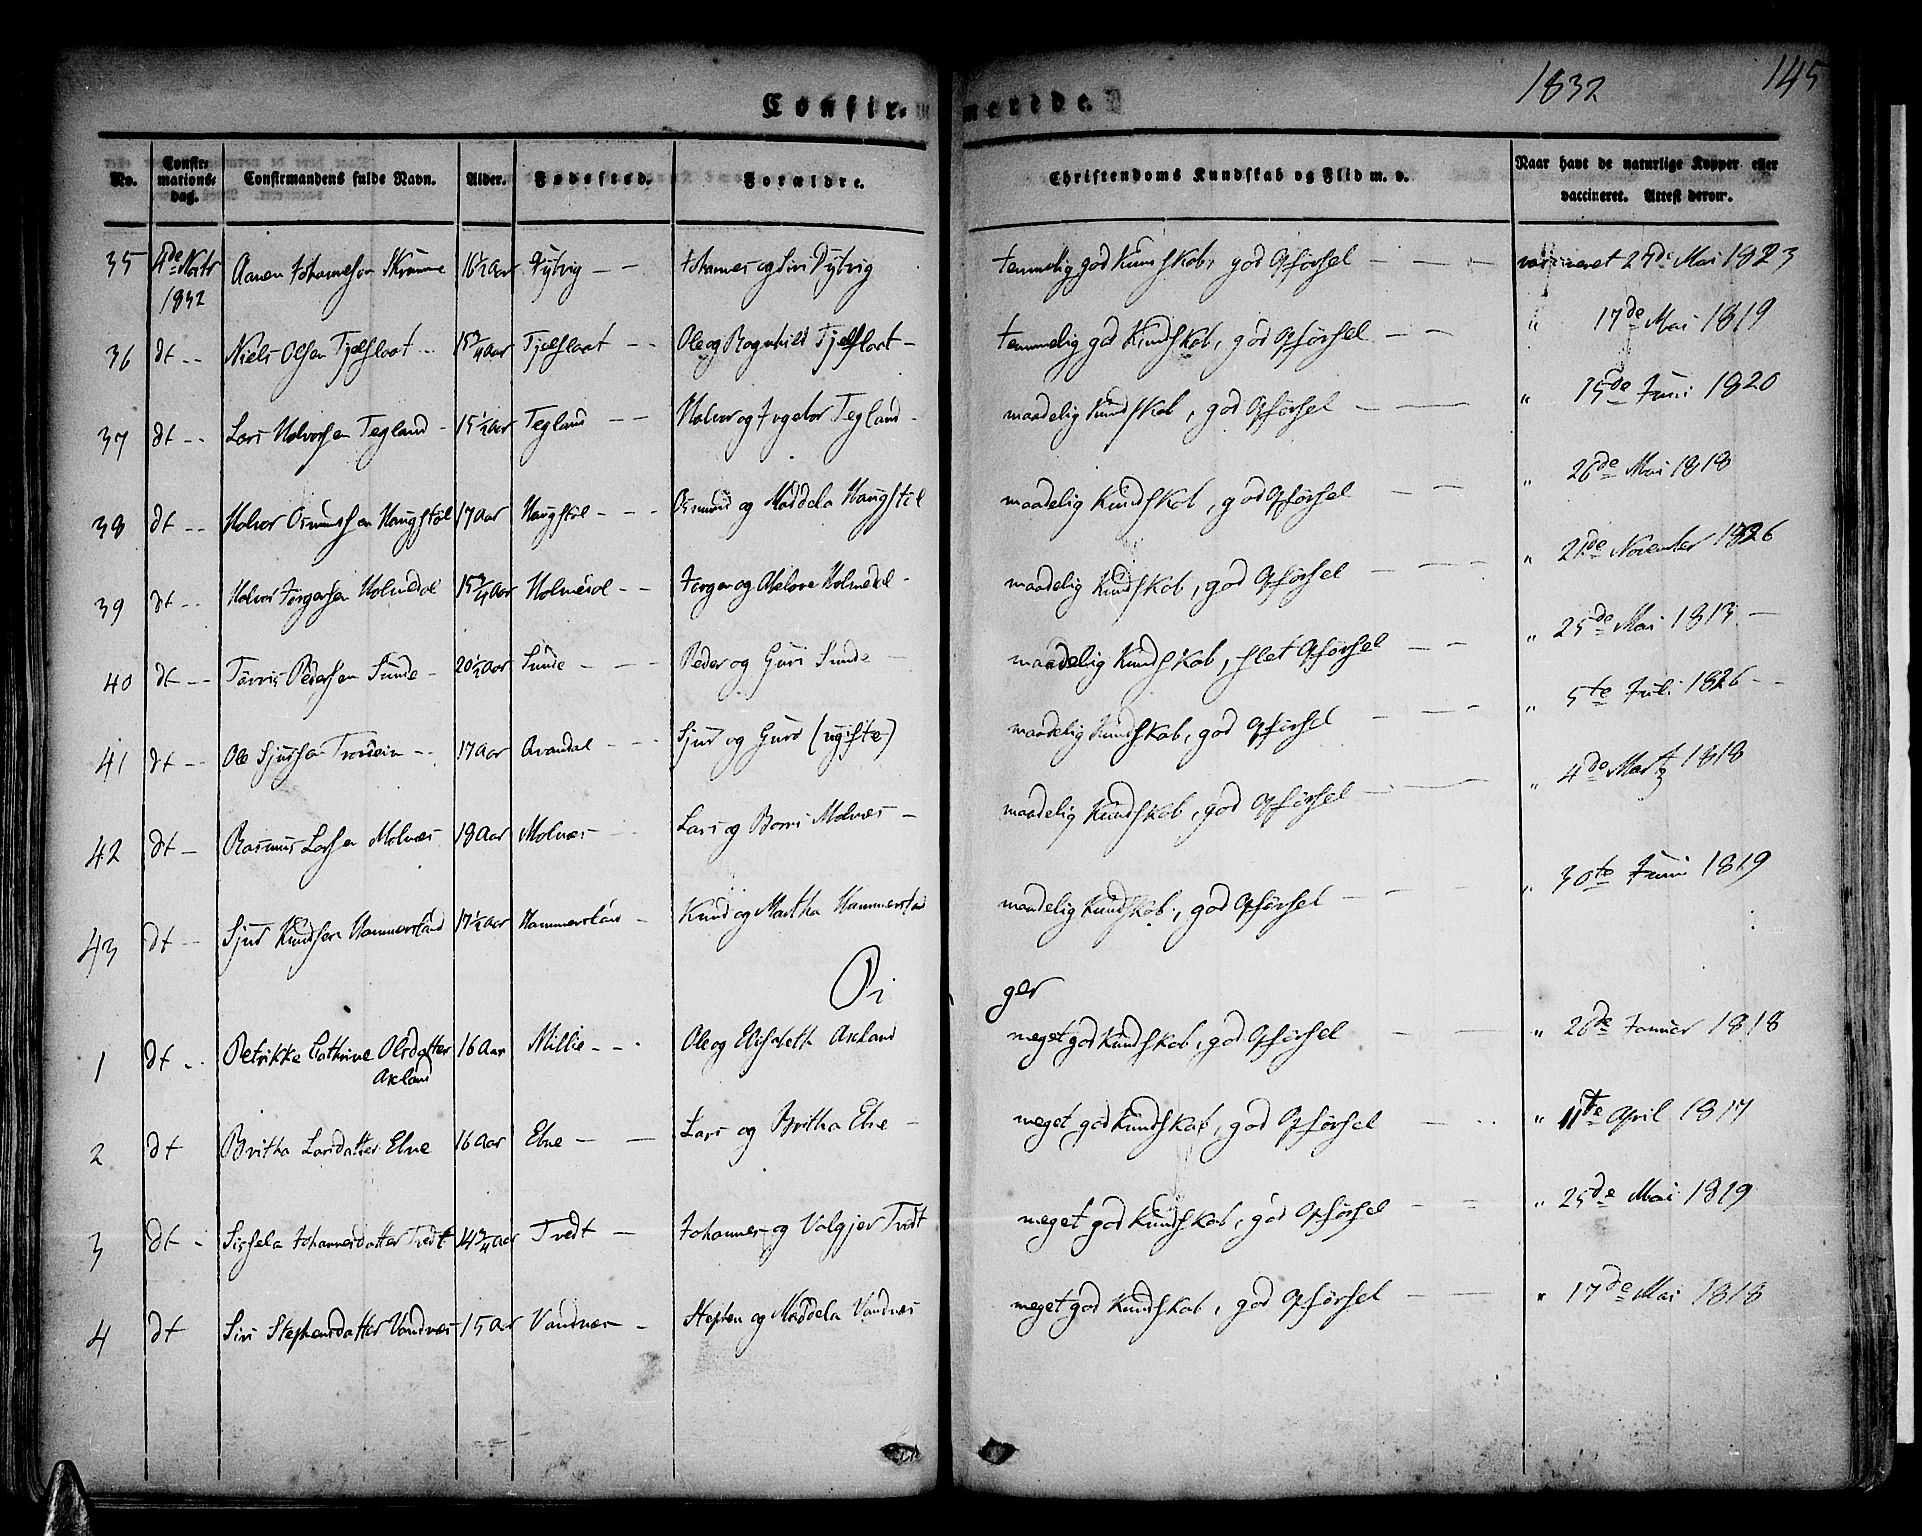 1832
145
Confir- merede.
No. Confirmations- dag. Confirmandens fulde Navn. Alder. Fødested. Forældre. Christendoms Kundskab og Flid m. v. Naar havt de naturlige Kopper eller vaccineret. Attest derom.
35 4de Novbr 1832 Aanen Johannesen 16½ Aar Johannes og Siri temmelig god Kundskab, god Opførsel vaccineret Mai 1823
36 dt Niels Olsen Tjelflaat 15¾ Aar Tjelflaat Ole og Ragnhild Tjelflaat temmelig god Kundskab, god Opførsel " 17de Mai 1819
37 dt Lars Halvorsen Tegland 15½ Aar Tegland Halvor og Ingebor Tegland maadelig Kundskab, god Opførsel " 15de Juni 1820
38 dt Halvor Osmundsen Haugstøl 17 Aar Haugstøl Osmund og Maddela Haugstøl maadelig Kundskab, god Opførsel " 26de Mai 1818
39 dt Halvor Jørgensen Holmedal 15¾ Aar Holmedal Jørgen og Holmedal maadelig Kundskab, god Opførsel " 21de November 1826
40 dt Pedersen Sunde 20½ Aar Sunde Peder og Guri Sunde maadelig Kundskab, slet Opførsel " 25de Mai 1813
41 dt Ole Sjursen 17 Aar Sjur og Guro (ugifte) maadelig Kundskab, god Opførsel " 5te Juli 1826
42 dt Rasmus Larsen Molnæs 18 Aar Molnæs Lars og Molnæs maadelig Kundskab, god Opførsel " 4de Martz 1818
43 dt Sjur Knudsen Hammersland 17½ Aar Hammersland Knud og Martha Hammersland maadelig Kundskab, god Opførsel " 30te Juni 1819
Pi ger
1 dt Petrikke Cathrine Olsdatter Axland 16 Aar Millie Ole og Elisabeth Axland meget god Kundskab, god Opførsel " 26de Januar 1818
2 dt Britha Larsdatter Ebne 16 Aar Ebne Lars og Britha Ebne meget god Kundskab, god Opførsel " 11te April 1817
3 dt Sissela Johannesdatter Tvedt 14¾ Aar Tvedt Johannes og Valgjer Tvedt meget god Kundskab, god Opførsel " 25de Mai 1819
4 dt Siri Stephensdatter Vandvæs 15 Aar Vandvæs Stephen og Maddela Vandvæs meget god Kundskab, god Opførsel " 17de Mai 1818